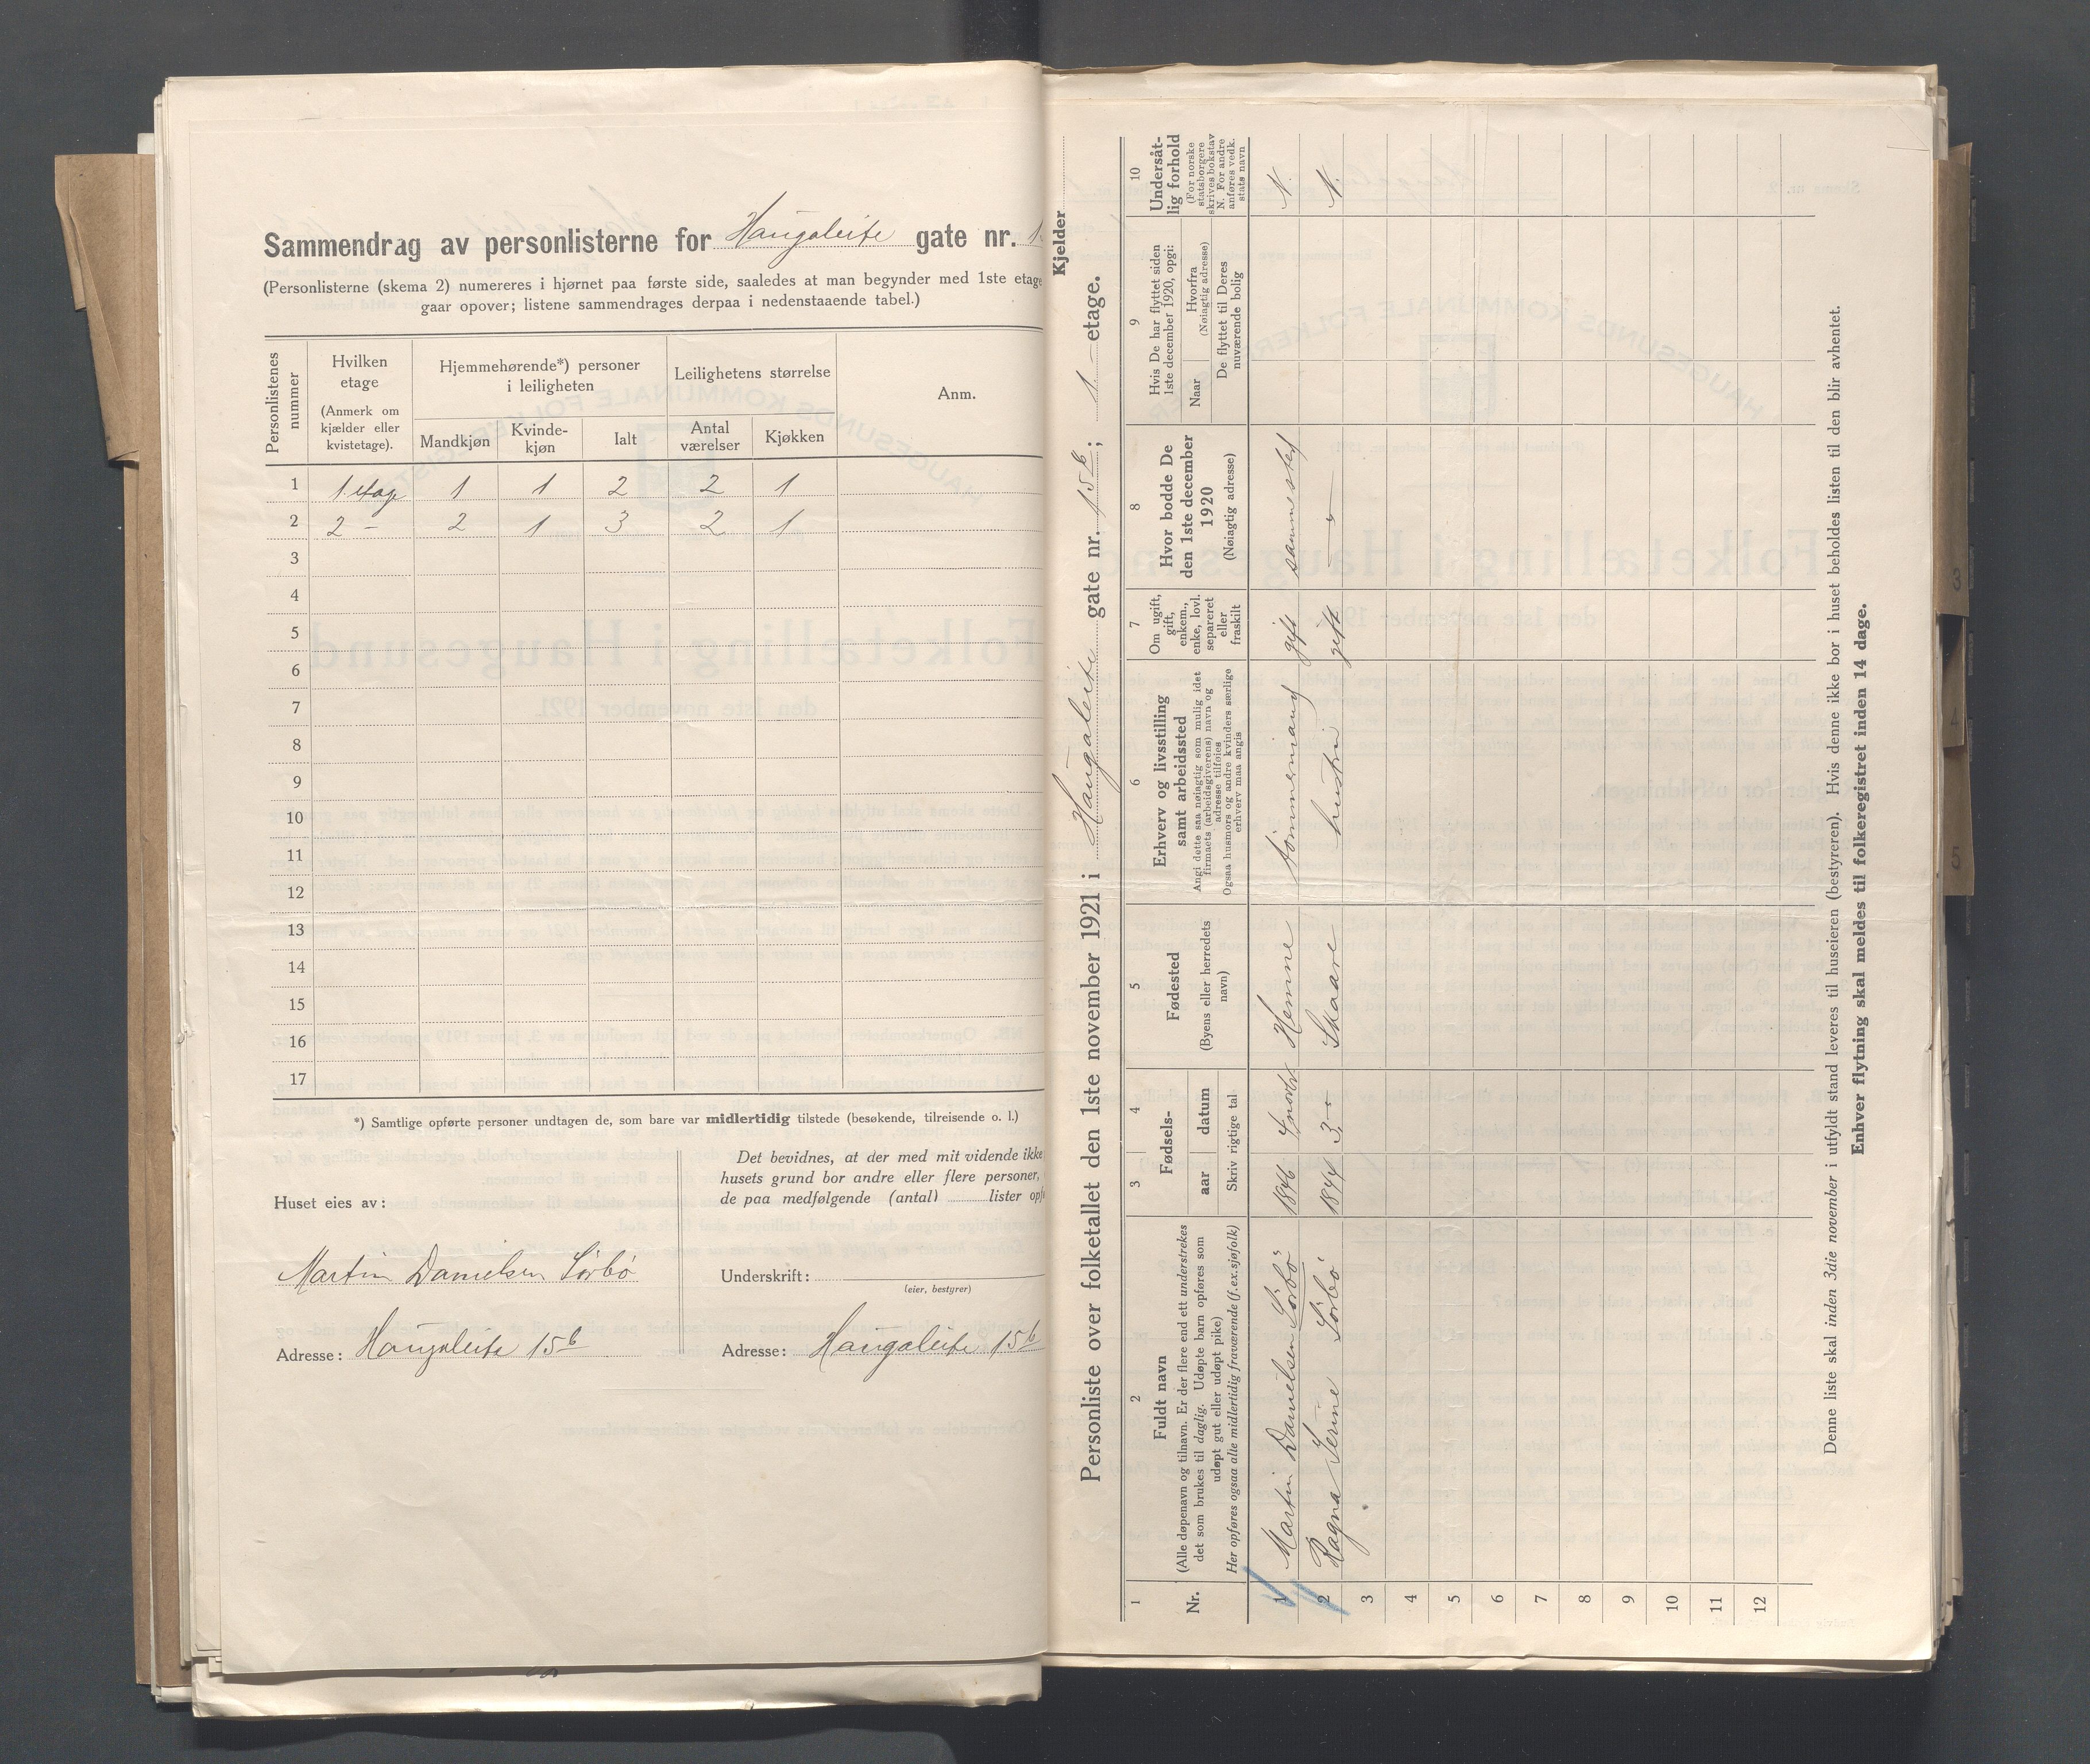 Sammendrag av personlisterne for Haugaleite gate nr. 1
(Personlisterne (skema 2) numereres i hjørnet paa første side, saaledes at man begynder med 1ste etage
gaar opover; listene sammendrages derpaa i nedenstaaende tabel.)
Personlistenes nummer
Hvilken etage
(Anmerk om kjælder eller kvistetage).
Hjemmehørende*) personer i leiligheten
Leilighetens størrelse
Anm.
Mandkjøn Kvindekjøn Ialt Antal værelser Kjøkken
1 1 etag 1 1 2 2 1
2 2 - 2 1 3 2 1
3
4
5
6
7
8
9
10
11
12
13
14
15
16
17
*) Samtlige opførte personer undtagen de, som bare var midlertidig tilstede (besøkende, tilreisende o. l.)
Huset eies av:
Martin Danielsen Sörbö
Adresse: Haugaleite 15b
Det bevidnes, at der med mit vidende ikke
husets grund bor andre eller flere personer,
de paa medfølgende (antal) lister
Underskrift:
(eier, bestyrer)
Adresse: Haugaleite 15b
Personliste over folketallet den 1ste november 1921 i Haugaleite gate nr. 15b; 1. etage.
Kjelder
1 2 3 4 5 6 7 8 9 10
Nr.
Fuldt navn
(Alle døpenavn og tilnavn. Er der flere end ett understrekes
det som brukes til daglig. Udøpte barn opføres som
udøpt gut eller udøpt pike)
Her opføres ogsaa alle midlertidig fraværende (f. ex. sjøfolk)
Fødsels-
aar datum
Skriv rigtige tal
Fødested
(Byens eller herredets navn)
Erhverv og livsstilling
samt arbeidssted
Angi dette saa nøiagtig som mulig idet
firmaets (arbeidsgiverens) navn og
adresse tilføies
Ogsaa husmors og andre kvinders særlige
erhverv maa angis
Om ugift,
gift,
enkem.,
enke, lovl.
separeret
eller
fraskilt
Hvor bodde De
den 1ste december
1920
(Nøiagtig adresse)
Hvis De har flyttet siden
1ste december 1920, opgi:
Naar
Hvorfra
(Nøiagtig adresse)
De flyttet til Deres
nuværende bolig
Undersåt-
lig forhold
(For norske
statsborgere
skrives bokstav
N. For andre
anføres vedk.
stats navn
1 Martin Danielsen Sörbö 1846 4 novbr Hemne tömmermand gift sammested N.
2 Ragna Serine Sörbö 1844 3 - Skaare hustru gift - " - N.
3
4
5
6
7
8
9
10
11
12
Denne liste skal inden 3die november i utfyldt stand leveres til huseieren (bestyreren). Hvis denne ikke bor i huset beholdes listen til den blir avhentet.
Enhver flytning skal meldes til folkeregistret inden 14 dage.